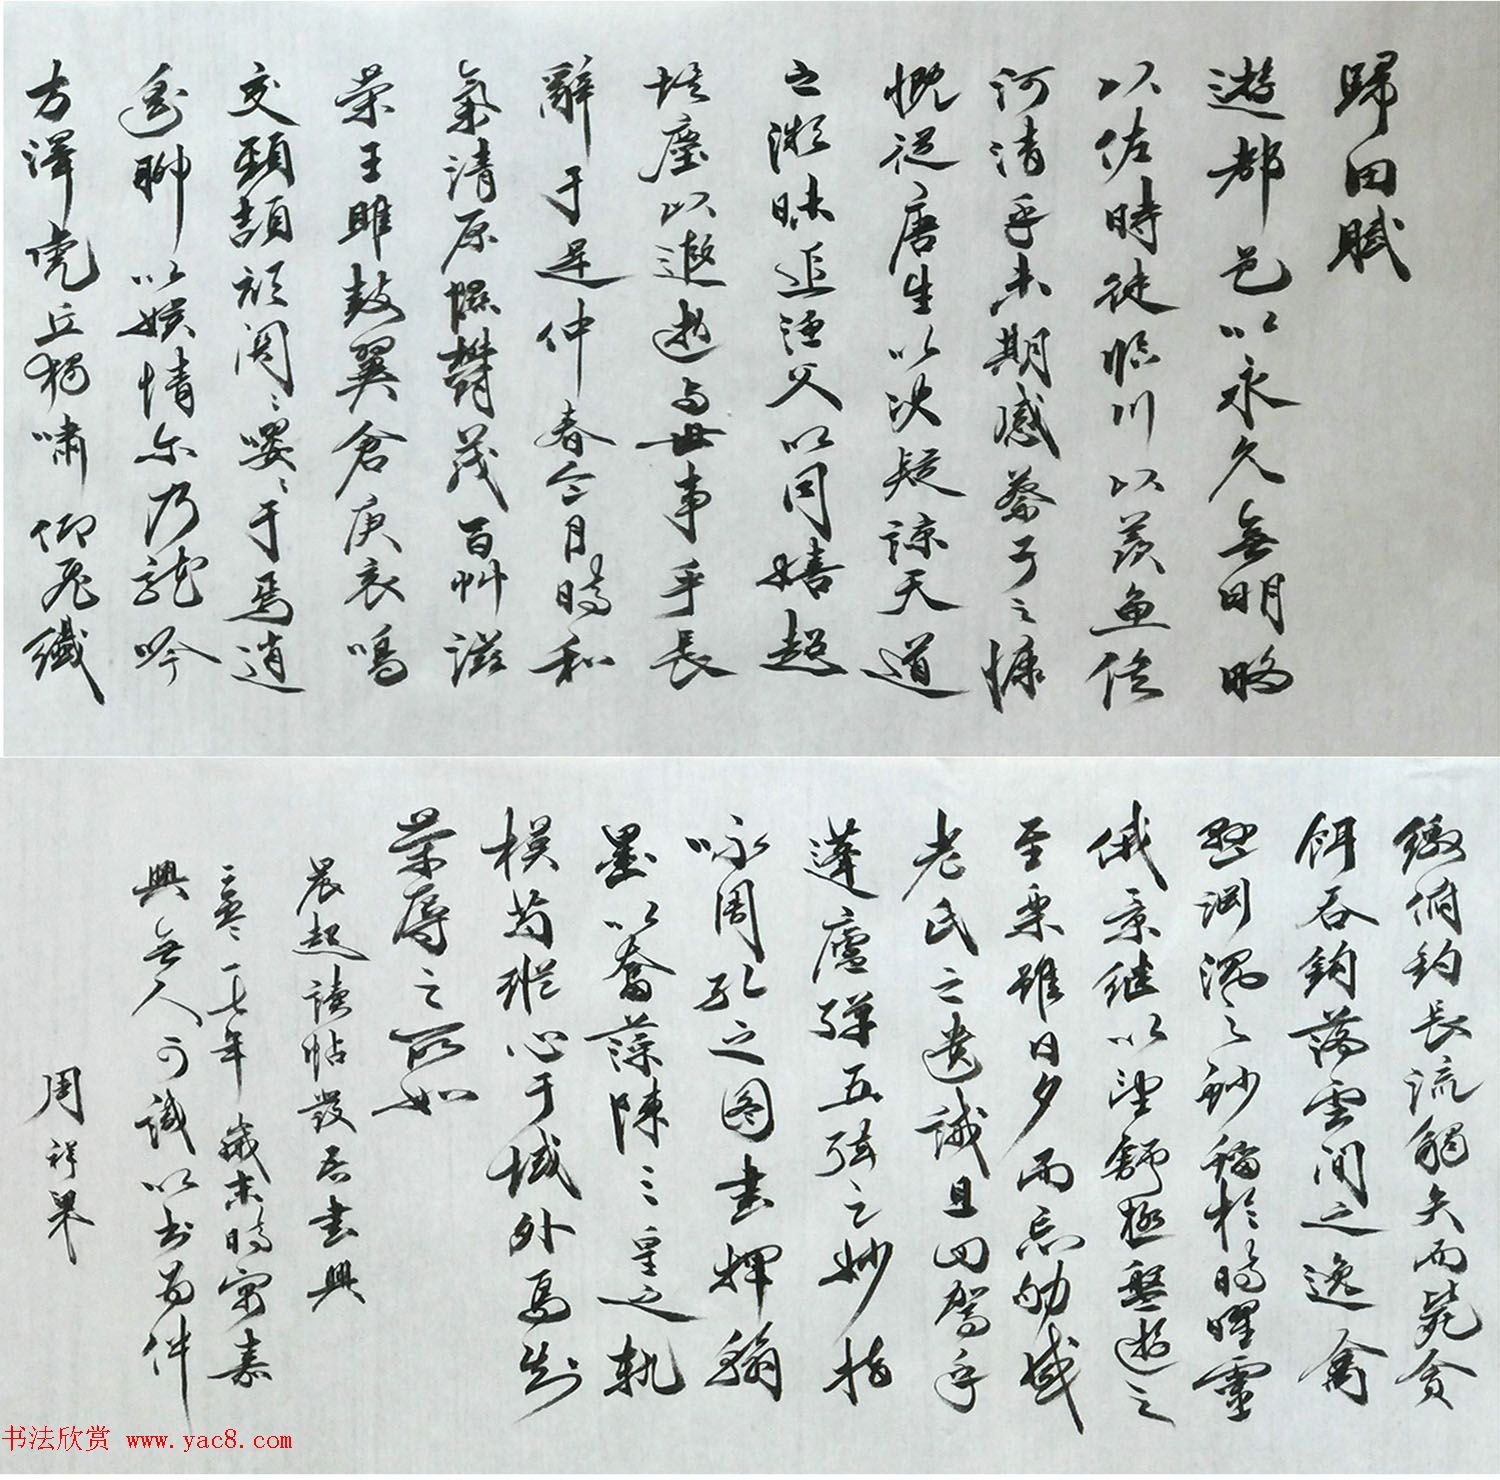 歸田賦
遊都邑以永久無明略
以佐時徒臨川以羨魚俟
河清乎未期感蔡子之慷
慨從唐生以決疑諒天道
之微昧追漁父以同嬉超
埃塵以遐逝與世事乎長
辭于是仲春令月時和
氣清原隰鬱茂百艸滋
榮王雎鼓翼倉庚哀鳴
交頸頡頏關〻嚶〻于焉逍
遙聊以娛情尔乃龍吟
方澤虎丘獨嘯仰飛纖
繳俯釣長流觸矢而斃貪
餌吞鉤落雲間之逸禽
懸淵沉之魦鰡於時曜靈
俄景继以望舒極盤遊之
至樂雖日夕而忘劬感
老氏之遺诫且回駕乎
蓬廬彈五弦之妙指
咏周孔之图書揮翰
墨以奮藻陳三皇之軌
模苟縱心于域外焉知
榮辱之所如
晨起读帖發
書興
二零一七年歲末時寓嘉
興無人可識以書為伴
周祥
书法欣赏 www.yac8.com